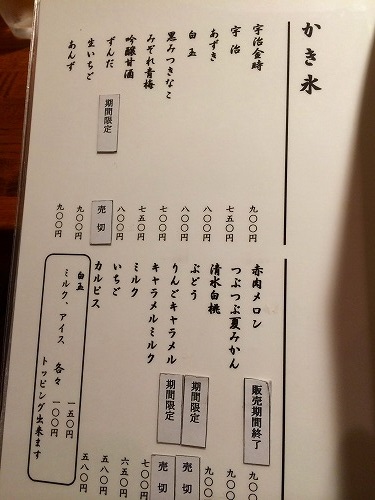 かき氷
宇治金時 九〇〇円
宇治 七五〇円
あずき 八〇〇円
白玉 八〇〇円
黒みつきなこ 七五〇円
みぞれ青梅 七五〇円
吟醸甘酒 八〇〇円
ずんだ 期間限定 売切
生いちご 九〇〇円
あんず 九〇〇円
赤肉メロン 販売期間終了 九〇
つぶつぶ夏みかん 九〇〇
清水白桃 九〇〇
ぶどう 期間限定 売切
りんごキャラメル 期間限定 売切
キャラメルミルク 七〇〇円
ミルク 六五〇円
いちご 五八〇円
カルピス 五八〇円
白玉 一五〇円
ミルク、アイス 各々 一〇〇円
トッピング出来ます